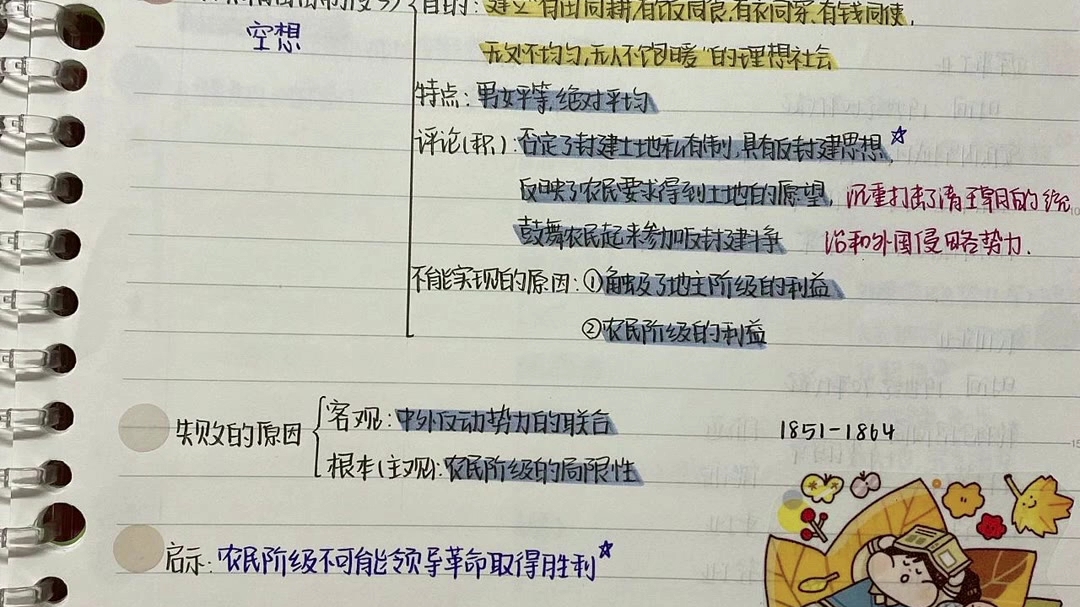 目的:建立"有田同耕,有饭同食,有衣同穿,有钱同使,
空想
无处不均匀,无人不饱暖"的理想社会
特点:男女平等,绝对平均
评论(积):否定了封建土地私有制,具有反封建思想,☆
反映了农民要求得到土地的愿望,沉重打击了清王朝的统
鼓舞农民起来参加反封建斗争 治和外国侵略势力.
不能实现的原因:①触及了地主阶级的利益
②农民阶级的利益
失败的原因
客观:中外反动势力的联合
1851-1864
根本(主观):农民阶级的局限性
启示:农民阶级不可能领导革命取得胜利☆